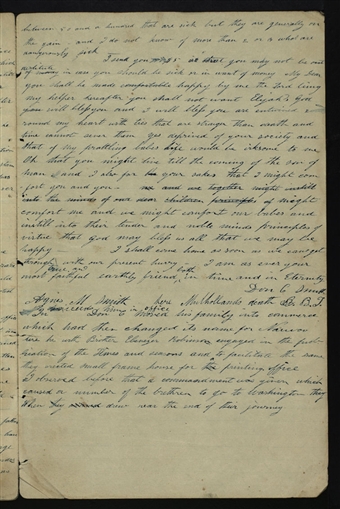 between 50 and a hundred that are sick but they are generally on
the gain and I do not know of more than 2 or 3 who are
dangerously sick
I send you that you may not be out
of money in case you should be sick or in want of money My dear
you shall be made comfortable happy by me the Lord being
my helper hereafter you shall not want Elijah's God
will bless you and I will bless you are entwined
round my heart with ties that are stronger than death and
time cannot sever them yes deprived of your society and
that of my prattling babes life would be irksome to me
Oh that you might live till the coming of the son of
man and I also for your sakes that I might com
fort you and you
into the minds of our dear children might
comfort me and we might comfort our babes and
instill into their tender and noble minds principles of
virtue that God may bless us all that we may be
happy I shall come home as soon as its and get
through with our present hurry I am as ever your
most faithful earthly friend both in time and in Eternity
Don C Smith
Agnes M Smith here
Don moved his family into commerce
which had then changed its name for Nauvoo
he with Brother Ebenezer Robinson engaged in the pub
lication of the times and seasons and to facilitate the same
they erected small frame home for the printing office
I observed before that a commandment was given which
caused a number of the brethren to go to Washington they
When they drew near the end of their journey